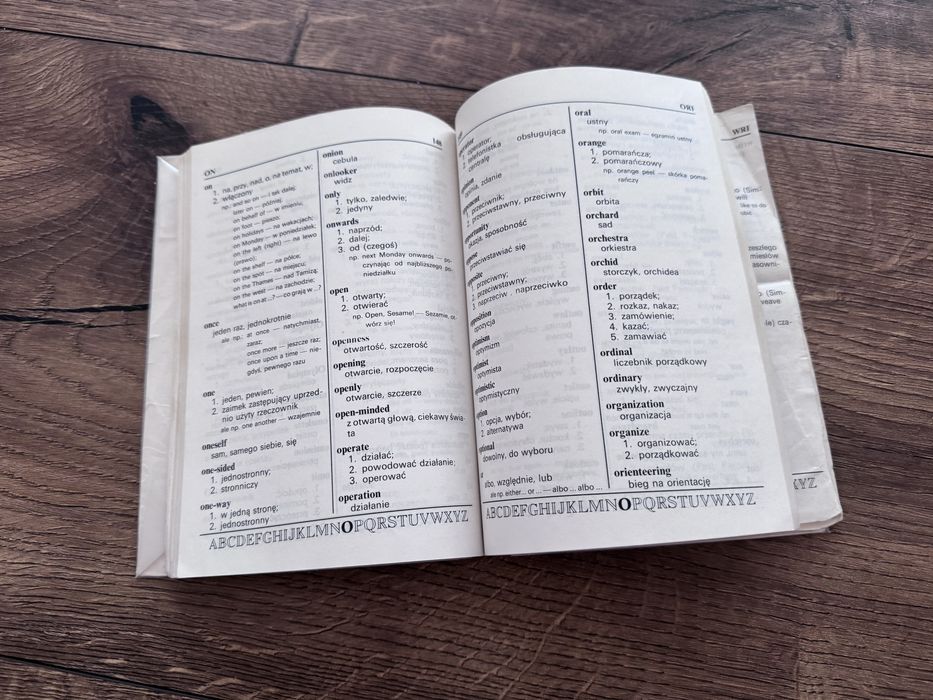 ON
148
on
1. na, przy, nad, o, na temat, w;
2. włączony
np.: and so on — i tak dalej;
later on — później;
on behalf of — w imieniu;
on foot — pieszo;
on holidays — na wakacjach;
on Monday — w poniedziałek;
on the left (right) — na lewo
(prawo);
on the shelf — na półce;
on the spot — na miejscu;
on the Thames — nad Tamizą;
on the west — na zachodzie;
what is on at ...? — co grają w ...?
once
jeden raz, jednokrotnie
ale np.: at once — natychmiast,
zaraz;
once more — jeszcze raz;
once upon a time — nie-
gdyś, pewnego razu
one
1. jeden, pewien;
2. zaimek zastępujący uprzed-
nio użyty rzeczownik
ale np. one another — wzajemnie
oneself
sam, samego siebie, się
one-sided
1. jednostronny;
2. stronniczy
one-way
1. w jedną stronę;
2. jednostronny
onion
cebula
onlooker
widz
only
1. tylko, zaledwie;
2. jedyny
onwards
1. naprzód;
2. dalej;
3. od (czegoś)
np. next Monday onwards — po-
czynając od najbliższego po-
niedziałku
open
1. otwarty;
2. otwierać
np. Open, Sesame! — Sezamie, ot-
wórz się!
openness
otwartość, szczerość
opening
otwarcie, rozpoczęcie
openly
otwarcie, szczerze
open-minded
z otwartą głową, ciekawy świa-
ta
operate
1. działać;
2. powodować działanie;
3. operować
operation
działanie
ABCDEFGHIJKLMNOPQRSTUVWXYZ
ORI
operator
1. operator;
2. telefonistka obsługująca
centralę
opinion
opinia, zdanie
opponent
1. przeciwnik;
2. przeciwstawny, przeciwny
opportunity
okazja, sposobność
oppose
przeciwstawiać się
opposite
1. przeciwny;
2. przeciwstawny;
3. naprzeciw naprzeciwko
opposition
opozycja
optimism
optymizm
optimist
optymista
optimistic
optymistyczny
option
1. opcja, wybór;
2. alternatywa
optional
dowolny, do wyboru
albo, względnie, lub
ale np. either... or ... — albo ... albo ...
oral
ustny
np. oral exam — egzamin ustny
orange
1. pomarańcza;
2. pomarańczowy
np. orange peel — skórka poma-
rańczy
orbit
orbita
orchard
sad
orchestra
orkiestra
orchid
storczyk, orchidea
order
1. porządek;
2. rozkaz, nakaz;
3. zamówienie;
4. kazać;
5. zamawiać
ordinal
liczebnik porządkowy
ordinary
zwykły, zwyczajny
organization
organizacja
organize
1. organizować;
2. porządkować
orienteering
bieg na orientację
ABCDEFGHIJKLMNOPQRSTUVWXYZ
WRI
(Sim-
will
like to do
zeszłego
miesłów
asowni-
(Sim-
weave
cza-
XYZ